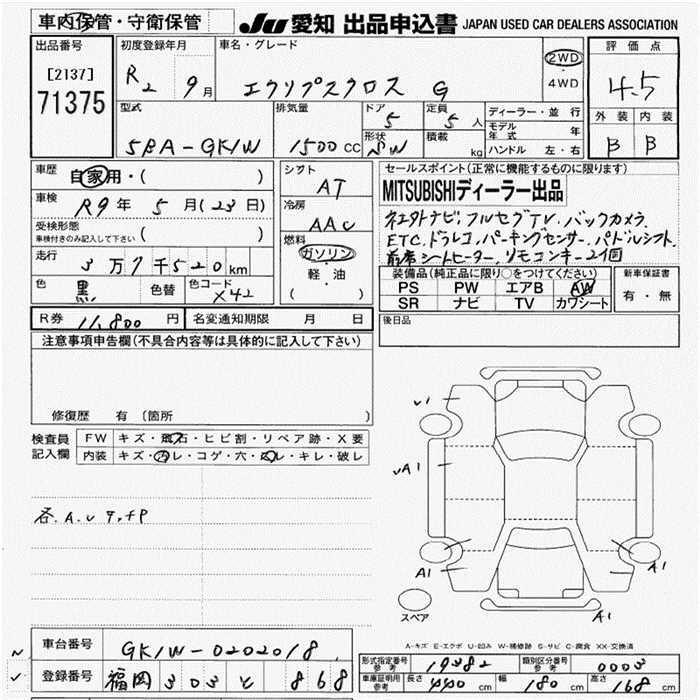 車内保管・守衛保管 JU 愛知 出品申込書 JAPAN USED CAR DEALERS ASSOCIATION
出品番号 [2137] 71375
初度登録年月 R2 9月
車名・グレード エクリプスクロス G
2WD・4WD
評価点 4.5
外装 内装
B B
型式 5BA-GK1W
排気量 1500cc
ドア 5
形状 SW
定員 5人
積載 kg
ディーラー・並行
モデル年式 年
ハンドル 左・右
車歴 自家用・( )
車検 R9年 5月(23日)
受検形態 車検付きのみ記入して下さい ( )
走行 3万7千520km
色 黒 色替 色コード X42
シフト AT
冷房 AAC
燃料 ガソリン・軽油 ( )
セールスポイント(正常に機能するものに限ります)
MITSUBISHIディーラー出品
ナビ.フルセグTV.バックカメラ.
ETC.ドラレコ.パーキングセンサー.パドルシフト.
前席シートヒーター.リモコンキー2個
装備品(純正品に限り○をつけてください)
PS PW エアB AW
SR ナビ TV カワシート
新車保証書 有・無
R券 11,800円 名変通知期限 月 日
後日品
注意事項申告欄(不具合内容等は具体的に記入して下さい)
修復歴 有 (箇所 )
検査員記入欄
FW キズ・飛石・ヒビ割・リペア跡・X要
内装 キズ・汚レ・コゲ・穴・スレ・キレ・破レ
各.A.U
V1
VA1
A1
A1
A1
スペア
A-キズ E-エクボ U-凹み W-補修跡 S-サビ C-腐食 XX-交換済
車台番号 GK1W-0202018
登録番号 福岡 303 868
形式指定番号 参考 19382 類別区分番号 参考 0003
車庫証明用 参考 長さ 440cm 幅 180cm 高さ 168cm